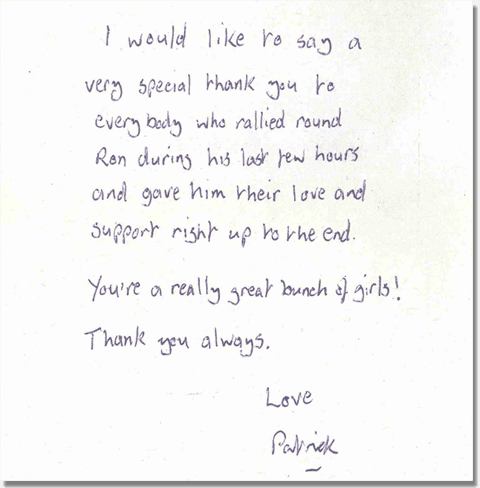 I would like to say a
very special thank you to
everybody who rallied round
Ron during his last few hours
and gave him their love and
support right up to the end.
You're a really great bunch of girls!
Thank you always.
Love
Patrick